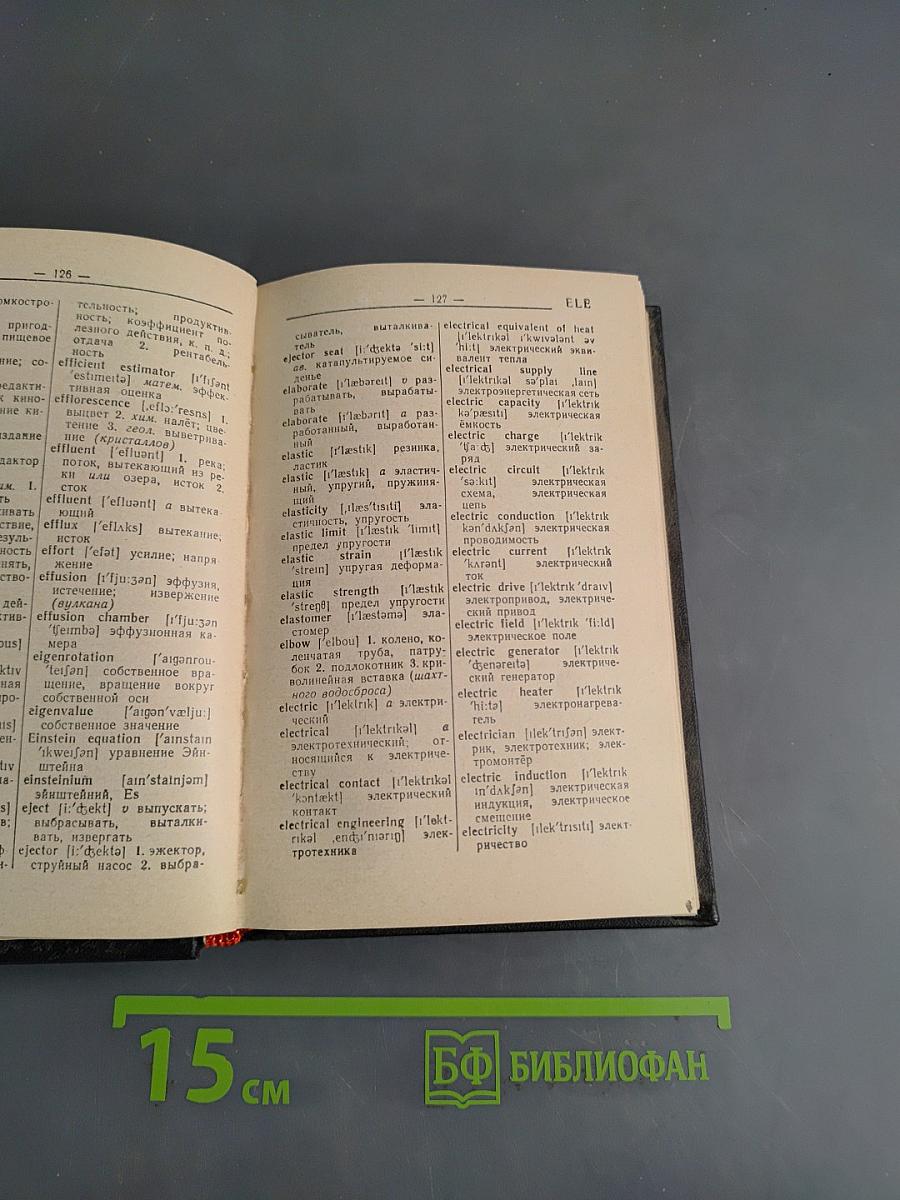 — 126 —
омкостро-
пригод-
пищевое
ние; со-
едакти-
к кино-
ние ки-
издание
дактор
им. 1.
ть
живать
ствие,
езуль-
ность
нять,
ство-
дей-
ктив-
ous]
ktiv
ная
про-
ен-
tiv
тельность; продуктив-
ность; коэффициент по-
лезного действия, к. п. д.;
отдача 2. рентабель-
ность
efficient estimator [ɪ'fɪʃənt
'estɪmeɪtə] матем. эффек-
тивная оценка
efflorescence [ˌeflɔ:'resns] 1.
выцвет 2. хим. налёт; цве-
тение 3. геол. выветрива-
ние (кристаллов)
effluent ['efluənt] 1. река;
поток, вытекающий из ре-
ки или озера, исток 2.
сток
effluent ['efluənt] a вытека-
ющий
efflux ['eflʌks] вытекание;
исток
effort ['efət] усилие; напря-
жение
effusion [ɪ'fju:ʒən] эффузия,
истечение; извержение
(вулкана)
effusion chamber [ɪ'fju:ʒən
'tʃeɪmbə] эффузионная ка-
мера
eigenrotation ['aɪgənrou-
'teɪʃən] собственное вра-
щение, вращение вокруг
собственной оси
eigenvalue ['aɪgən'vælju:]
собственное значение
Einstein equation ['aɪnstaɪn
ɪ'kweɪʃən] уравнение Эйн-
штейна
einsteinium [aɪn'staɪnjəm]
эйнштейний, Es
eject [i:'dʒekt] v выпускать;
выбрасывать, выталки-
вать, извергать
ejector [i:'dʒektə] 1. эжектор,
струйный насос 2. выбра-
— 127 —
ELE
сыватель, выталкива-
тель
ejector seat [i:'dʒektə 'si:t]
ав. катапультируемое си-
денье
elaborate [ɪ'læbəreɪt] v раз-
рабатывать, вырабаты-
вать
elaborate [ɪ'læbərɪt] a раз-
работанный, выработан-
ный
elastic [ɪ'læstɪk] резинка,
ластик
elastic [ɪ'læstɪk] a эластич-
ный, упругий, пружиня-
щий
elasticity [ˌɪlæs'tɪsɪtɪ] эла-
стичность, упругость
elastic limit [ɪ'læstɪk 'lɪmɪt]
предел упругости
elastic strain [ɪ'læstɪk
'streɪn] упругая деформа-
ция
elastic strength [ɪ'læstɪk
'streŋθ] предел упругости
elastomer [ɪ'læstəmə] эла-
стомер
elbow ['elbou] 1. колено, ко-
ленчатая труба, патру-
бок 2. подлокотник 3. кри-
волинейная вставка (шахт-
ного водосброса)
electric [ɪ'lektrɪk] a электри-
ческий
electrical [ɪ'lektrɪkəl] a
электротехнический; от-
носящийся к электриче-
ству
electrical contact [ɪ'lektrɪkəl
'kɔntækt] электрический
контакт
electrical engineering [ɪ'lekt-
rɪkəl ˌendʒɪ'nɪərɪŋ] элек-
тротехника
electrical equivalent of heat
[ɪ'lektrɪkəl ɪ'kwɪvələnt əv
'hi:t] электрический экви-
валент тепла
electrical supply line
[ɪ'lektrɪkəl sə'plaɪ ˌlaɪn]
электроэнергетическая сеть
electric capacity [ɪ'lektrɪk
kə'pæsɪtɪ] электрическая
ёмкость
electric charge [ɪ'lektrɪk
'tʃa:dʒ] электрический за-
ряд
electric circuit [ɪ'lektrɪk
'sə:kɪt] электрическая
схема, электрическая
цепь
electric conduction [ɪ'lektrɪk
kən'dʌkʃən] электрическая
проводимость
electric current [ɪ'lektrɪk
'kʌrənt] электрический
ток
electric drive [ɪ'lektrɪk 'draɪv]
электропривод, электриче-
ский привод
electric field [ɪ'lektrɪk 'fi:ld]
электрическое поле
electric generator [ɪ'lektrɪk
'dʒenəreɪtə] электриче-
ский генератор
electric heater [ɪ'lektrɪk
'hi:tə] электронагрева-
тель
electrician [ɪlek'trɪʃən] элект-
рик, электротехник; элек-
тромонтёр
electric induction [ɪ'lektrɪk
ɪn'dʌkʃən] электрическая
индукция, электрическое
смещение
electricity [ɪlek'trɪsɪtɪ] элект-
ричество
15 см
БФ БИБЛИОФАН